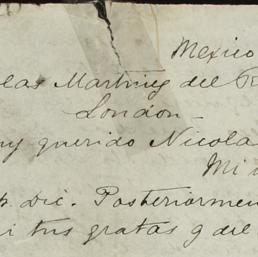 Mexico
las Martinez del
London
y querido Nicola
Mi
Dic. Posteriormen
i tus gratas q del